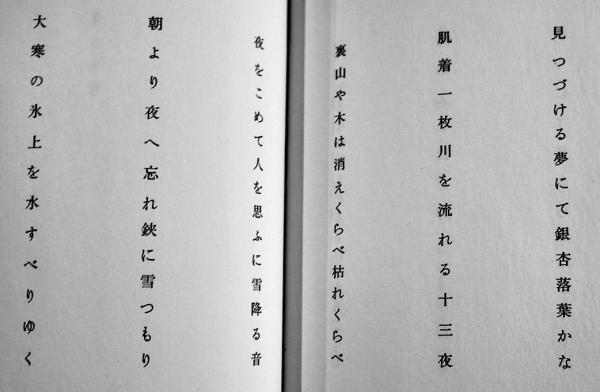 見つづける夢にて銀杏落葉かな
肌着一枚川を流れる十三夜
裏山や木は消えくらべ枯れくらべ
夜をこめて人を思ふに雪降る音
朝より夜へ忘れ鋏に雪つもり
大寒の氷上を水すべりゆく